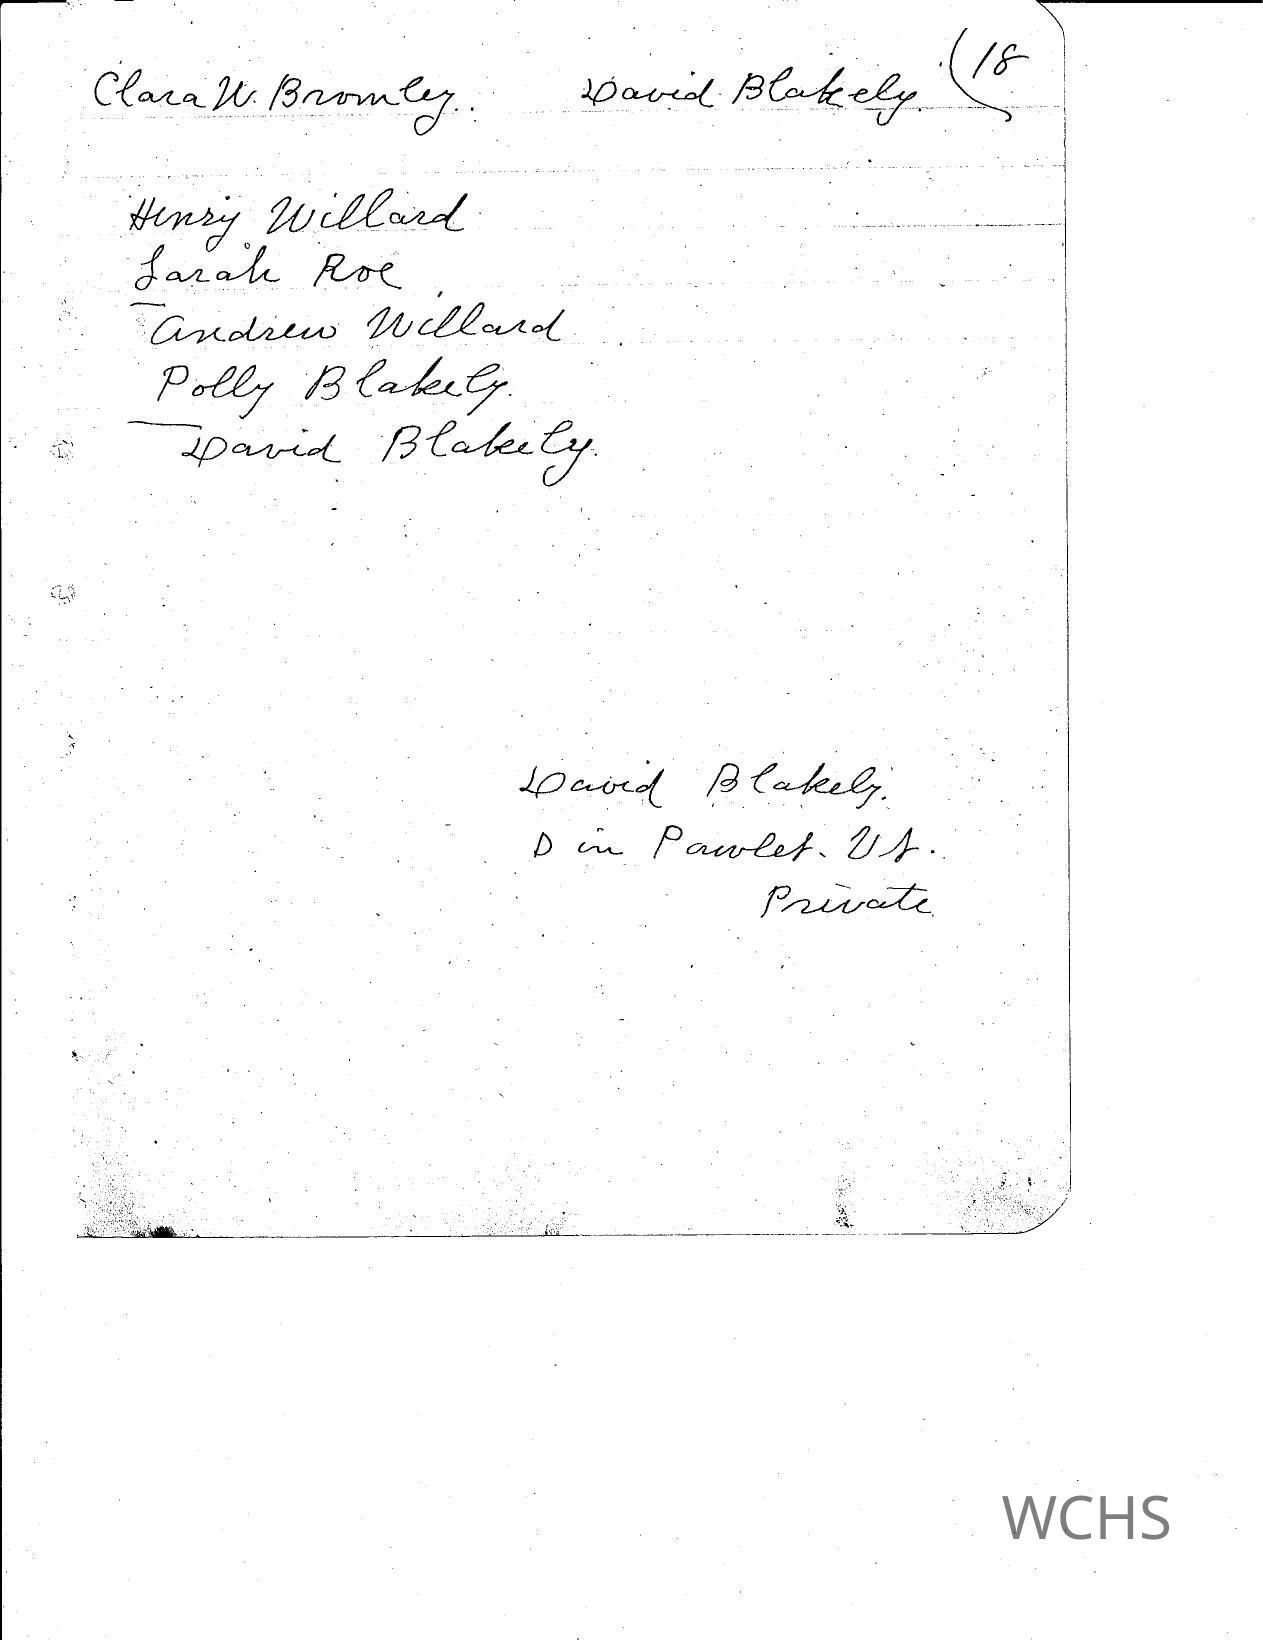 Clara W. Bromley. David Blakely. (18
Henry Willard
Sarah Roe
Andrew Willard
Polly Blakely.
David Blakely.
David Blakely.
D in Pawlet. Vt.
Private
WCHS